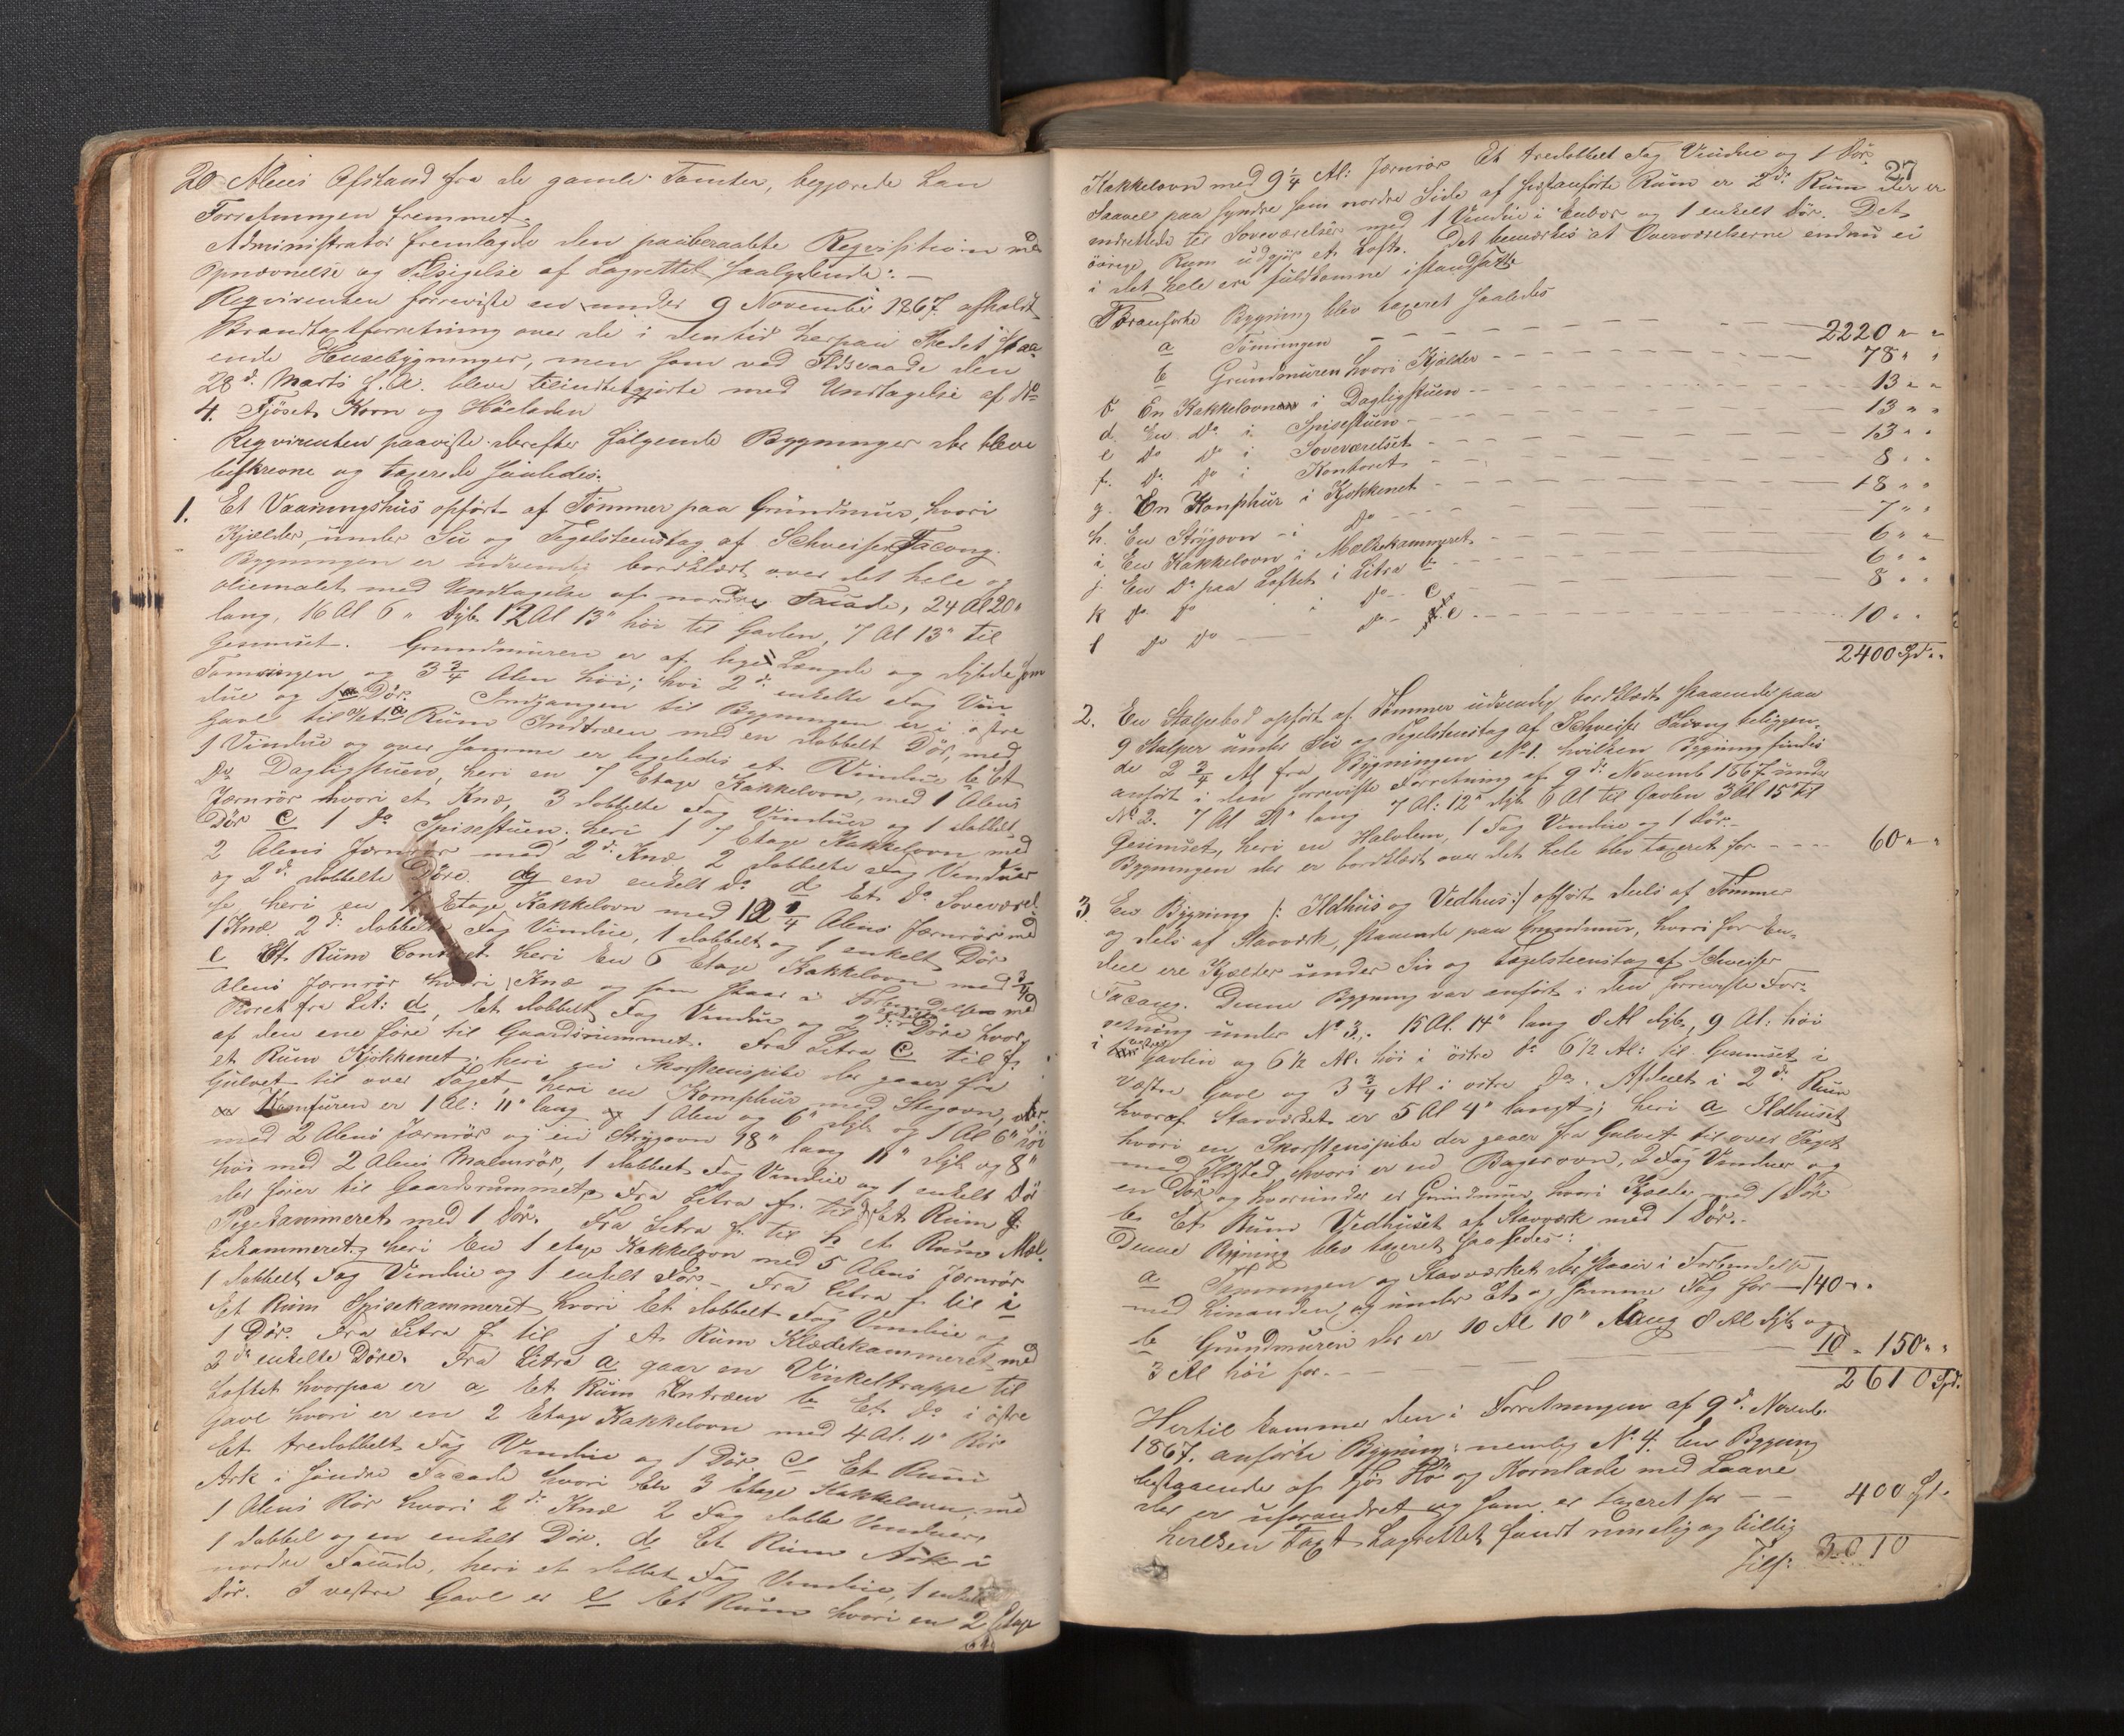 20 Alens Afstand fra de gamle Tomter, begjærede han
Forretningen fremmet.
Administrator fremlagde den paaberaabte Reqvisition med
Opnævnelse og Tilsigelse af Lagrettet saalydende: —
Reqvirenten foreviste en under 9 November 1867 afholdt
Brandtaxtforretning over de i den tid herpaa Stedet staa-
ende Husebygninger, men som ved Ildsvaade den
28 d. Marts d. A. bleve tilintetgjorte med Undtagelse af No
4. Fjöset, Korn og Höeladen
Reqvirenten paaviste derefter følgende Bygninger der bleve
beskrevne og taxerede saaledes:
1. Et Vaaningshus opført af Tømmer paa Grundmur, hvori
Kjælder, under Su og Tegelsteenstag af Schveiser Facong.
Bygningen er udvendig bordklædt over det hele og
oliemalet med Undtagelse af nordre Facade, 24 Al 20"
lang, 16 Al 6" dyb 12 Al 13" høi til Gavlen, 7 Al 13" til
Gesimset. Grundmuren er af lige Længde og dybde som
Tømringen og 3 3/4 Alen høi; hvori 2 d. enkelte Fag Vin
due og 1 Dör. Indgangen til Bygningen er i östre
Gavl til et a Rum Indtræen med en dobbelt Dör, med
1 Vindue og over samme er ligeledes et Vindue b Et
Do Dagligstuen, heri en 7 Etage Kakkelovn, med 1 Alens
Jernrör hvori et Knæ, 3 dobbelte Fag Vinduer og 1 dobbelt
Dör c 1 Do Spisestuen; heri 1 7 Etage Kakkelovn med
2 Alens Jernrør med 2 d. Knæ 2 dobbelte Fag Vinduer
og 2 d. dobbelte Döre. og en enkelt do d Et do Soveværel
se, heri en 7 Etage Kakkelovn med 12 1/4 Alens Jernrör med
1 Knæ. 2 d. dobbelte Fag Vindue, 1 dobbelt og 1 enkelt Dör
e Et Rum Contoret heri En 6 Etage Kakkelovn med 3/4
Alens Jernrør hvori Knæ og som staar i Forbindelse med
Röret fra Lit: d, Et dobbelt Fag Vindue og 2 d. enkelte Döre hvor
af den ene före til Gaardsrummet. Fra Litra c til f.
et Rum Kjökkenet; heri en Skorsteenspibe der gaaer fra
Gulvet til over Taget, heri en Komphur med Stegovn, der
Komfuren er 1 Al: 11" lang 1 Alen og 6" dyb og 1 Al 6" höi
med 2 Alens Jernrör og en Strygovn 18" lang 11" dyb og 8"
höi med 2 Alens Malmrör, 1 dobbelt Fag Vindue og 1 enkelt Dör
der fører til Gaardsrummet. Fra Litra f. til Et Rum g.
Pigekammeret med 1 Dör. Fra Litra f. til h et Rum Mæl-
kekammeret, heri En 1 etage Kakkelovn med 5 Alens Jernrör
1 dobbelt Fag Vindue og 1 enkelt Dör. Fra Litra f. til i
Et Rum Spisekammeret hvori Et dobbelt Fag Vindue og
1 Dör. Fra Litra f. til j et Rum Klædekammeret med
2 de enkelte Döre. Fra Litra a gaar en Vinkeltrappe til
Loftet hvorpaa er a Et Rum Entræen b Et Do i östre
Gavl hvori er en 2 Etage Kakkelovn med 4 Al. 11" Rör
Et tredobbelt Fag Vindue og 1 Dör c Et Rum
Ark i søndre Facade hvori En 3 Etage Kakkelovn, med
1 Alens Rör hvori 2 d. Knæ 2 Fag dobbe Vinduer,
1 dobbel og en enkelt Dör. d Et Rum Ark i
nordre Facade, heri et dobbet Fag Vindue, 1 enkelt
Dör. I vestre Gavl er e Et Rum hvori en 2 Etage
27
Kakkelovn med 9 1/4 Al: Jernrör Et tredobbelt Fag Vindue og 1 Dör.
Saavel paa syndre som nordre Side af sistanførte Rum er 2 d. Rum der er
indrettede til Soveværelser med 1 Vindue i Enhver og 1 enkelt Dör. Det
övrige Rum udgjør et Loft. Det bemærkes at Overværelserne endnu ei
i det hele ere fuldkomne istandsatte
Foranførte Bygning blev taxeret saaledes
a Tømringen — 2220 " "
b Grundmuren hvori Kjælder — 78 " "
c. En Kakkelovn i Dagligstuen — 13 " "
d. En Do i Spisestuen — 13 " "
e Do Do i Soveværelset — 13 " "
f. Do Do i Kontoret — 8 " "
g. En Komphur i Kjøkkenet — 18 " "
h. En Strygovn i Do — 7 " "
i En Kakkelovn i Mælkekammeret — 6 " "
j En Do paa Loftet i Litra b — 6 " "
k Do Do i Do c — 8 " "
l Do Do — Do e — 10 " "
2400 Spd " "
2. En Stolpebod opført af Tømmer udvendig bordklædt staaende paa
9 Stolper under Su og Tegelsteenstag af Schveiser Facong beliggen-
de 2 3/4 Al fra Bygningen No 1. hvilken Bygning findes
anført i den foreviste Forretning af 9 d. Novemb 1867 under
No 2. 7 Al 21" lang 7 Al: 12" dyb 6 Al til Gavlen 3 Al 15" til
Gesimset, heri en Halvlem, 1 Fag Vindue og 1 Dör.
Bygningen der er bordklædt over det hele blev taxeret for — 60 " "
3. En Bygning /: Ildhus og Vedhus :/ opført deels af Tømmer
og dels af Stavværk, staaende paa Grundmur, hvori for En-
deel ere Kjælder under Su og Tegelsteenstag af Schweiser
Facong. Denne Bygning var anført i den foreviste For-
retning under No 3. 15 Al. 14" lang 8 Al dyb, 9 Al: höi
i vestre Gavlen og 6 1/2 Al: höi i östre do 6 1/2 Al: til Gesimset i
væstre Gavl og 3 3/4 Al i østre Do. Afdeelt i 2 d. Rum
hvoraf Stavværket er 5 Al 4" langt; heri a Ildhuset
hvori en Skorstenspibe der gaaer fra Gulvet til over Taget
med Ildsted hvori er en Bagerovn, 2 Fag Vinduer og
en Dör og hvorunder er Grundmur hvori Kjælder med 1 Dör
b Et Rum Vedhuset af Stavværk med 1 Dör.
Denne Bygning blev taxeret saaledes:
a Tømringen og Stavværket der staaer i Forbindelse
med hinanden og under Et og samme Tag for — 140 " "
b Grundmuren der er 10 Al 10" lang 8 Al dyb og
3 Al höi for — 10 " 150 " "
2610 Spd.
Hertil kommer den i Forretningen af 9 d. Novemb.
1867. anførte Bygning: nemlig No 4. En Bygning
bestaaende af Fjös Hö og Kornlade med Laave
der er uforandret og som er taxeret for — 400 Spd.
hvilken Taxt Lagrettet fandt rimelig og billig
Tils: 3010